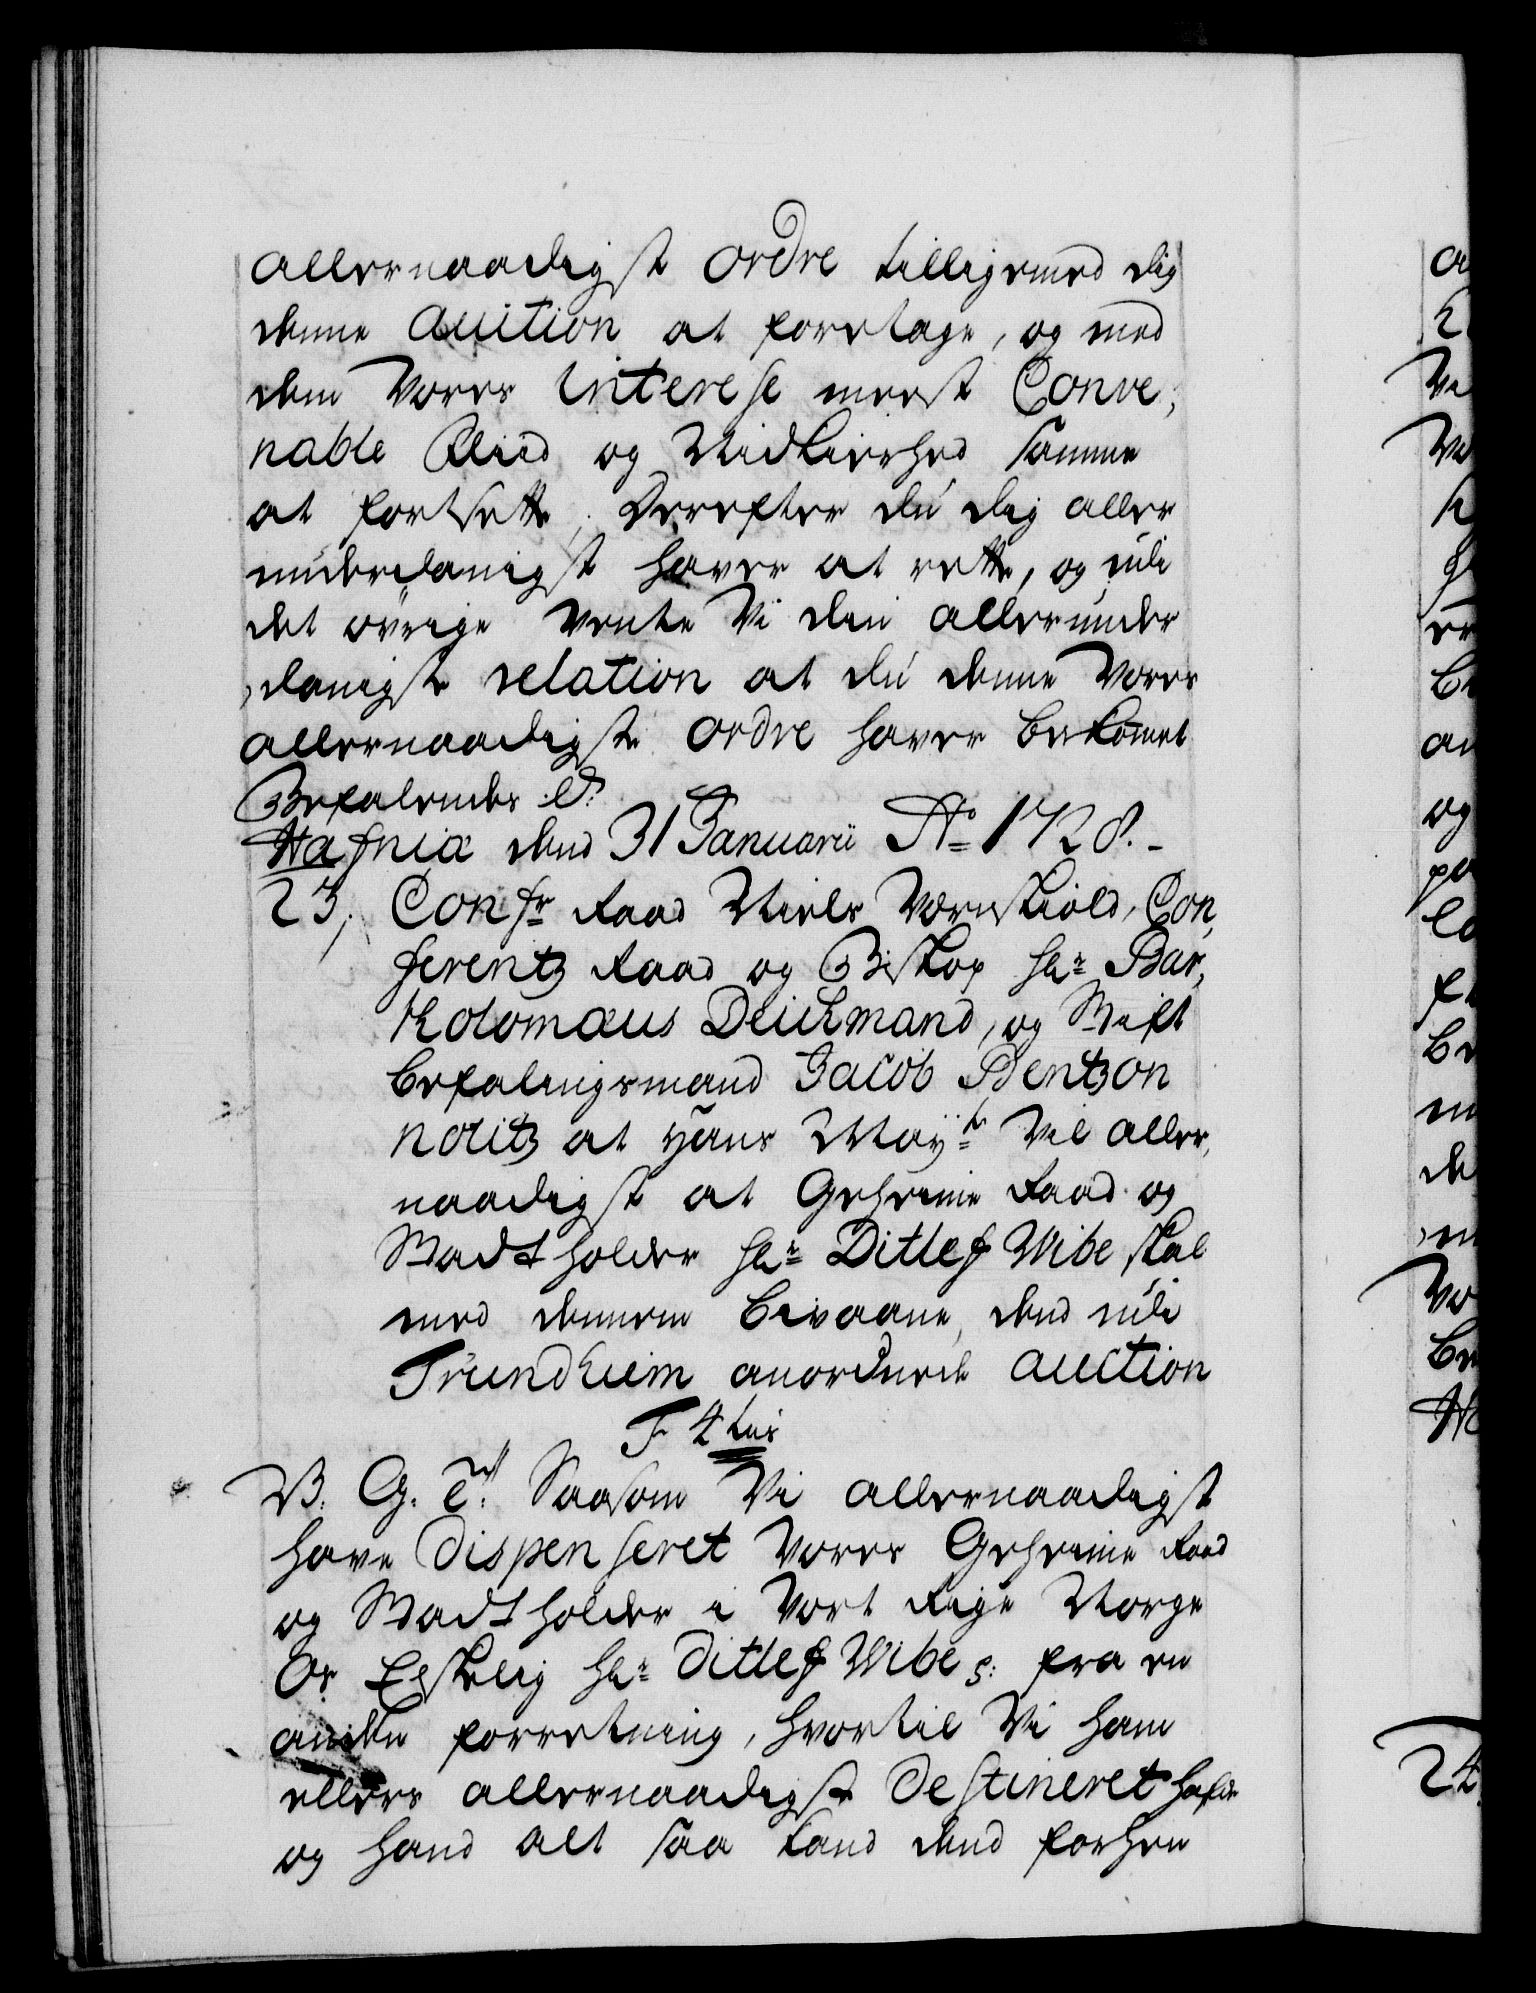 allernaadigst ordre tilligemed dig
denne auction at foretage, og med
den Vores Interesse meest Conve,
nable Fliid og Vidtlierhed samme
at fortsette. Derefter du dig aller
underdanigst haver at rette, og udi
det øvrige Vente Vi din allerunder
,danigste relation at du denne Vores
allernaadigste ordre haver bekomet
Befalendes E:
Hafniæ dend 31 Januarii Ao 1728. -
23, Confr Raad Niels Værnskiold, Con,
ferentz Raad og Biskop Hr Bar,
tholomæus Deichmand, og Stift
befalingsmand Jacob Bentzon
notitz at Hans Mayts Vil aller,
naadigst at Geheime Raad og
Stadtholder Hr Ditlef Wibe skal
med dennem bivaane dend udi
Trundhiem anordnede auction
F 4ter
V. G. T. Saasom Vi allernaadigst
have dispenseret Vores Geheime Raad
og Stadtholder i Vort Rige Norge
Os Elskelig Hr Ditlef Wibe p: fra en
anden forretning, hvortil Vi ham
ellers allernaadigst destineret hafde
og hand alt saa kand dend forhen